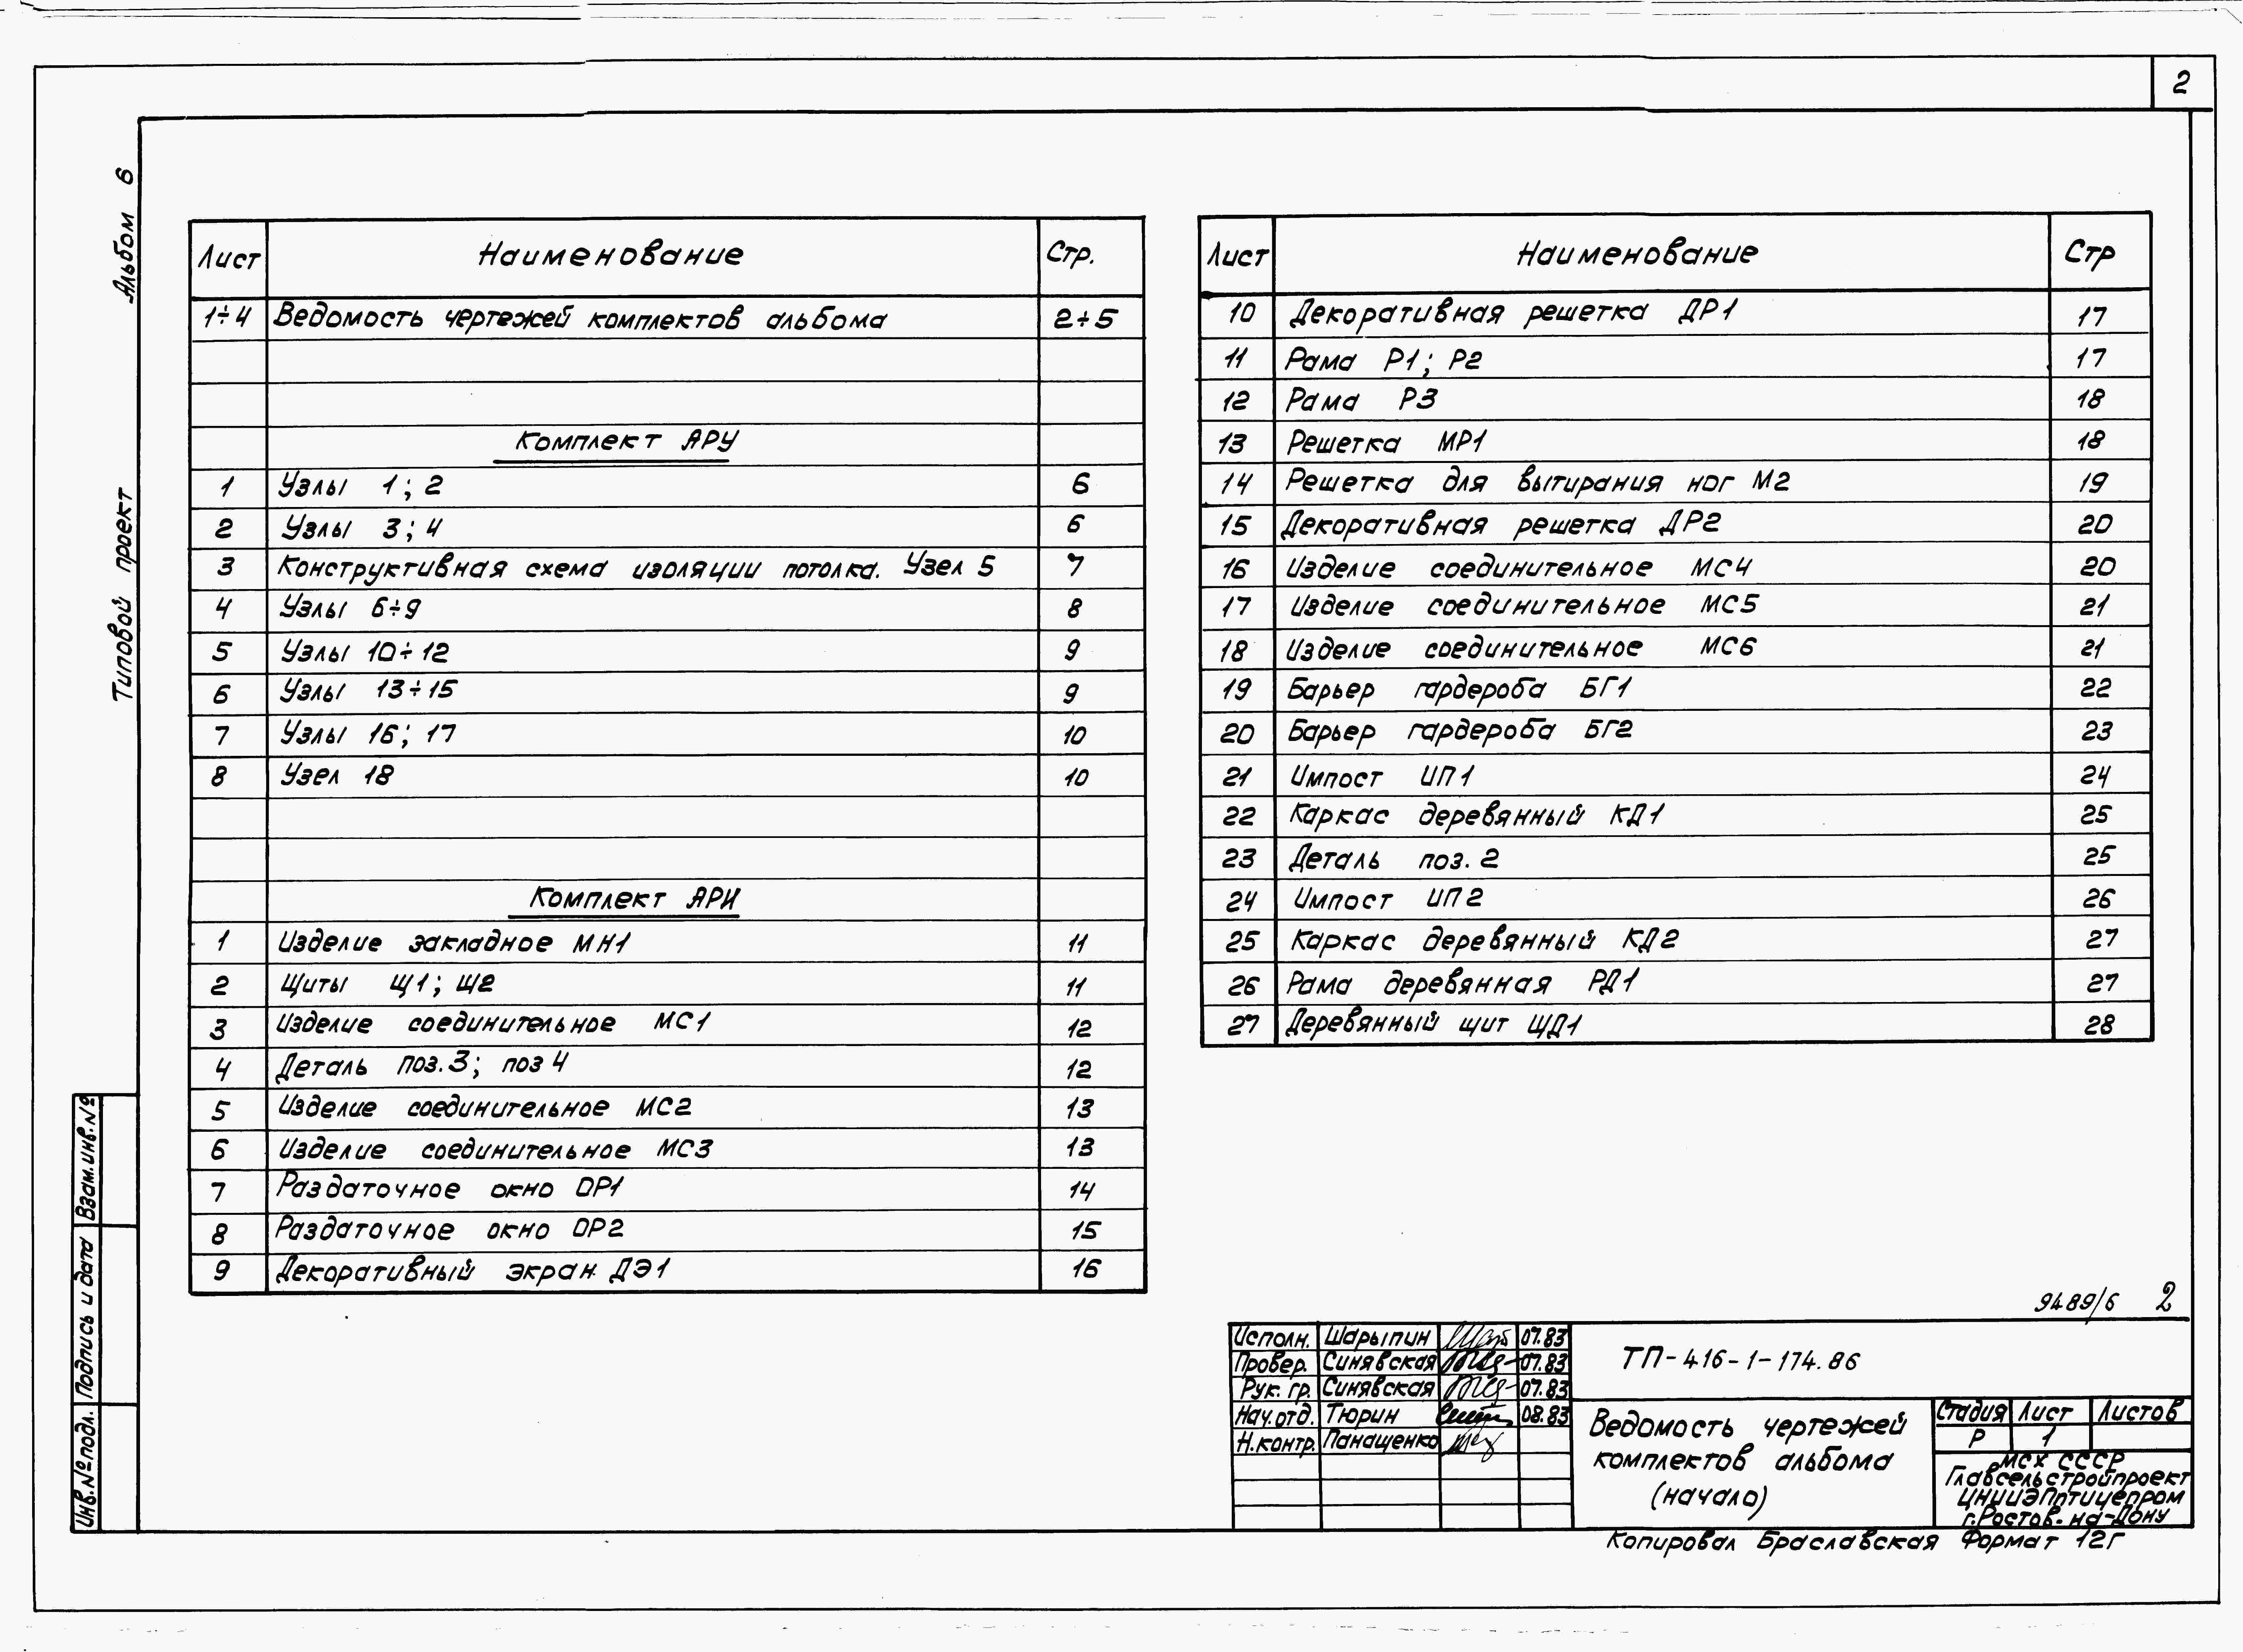 2
Альбом 6
Типовой проект
Лист Наименование Стр.
1÷4 Ведомость чертежей комплектов альбома 2÷5
Комплект АРУ
1 Узлы 1; 2 6
2 Узлы 3; 4 6
3 Конструктивная схема изоляции потолка. Узел 5 7
4 Узлы 6÷9 8
5 Узлы 10÷12 9
6 Узлы 13÷15 9
7 Узлы 16; 17 10
8 Узел 18 10
Комплект АРИ
1 Изделие закладное МН1 11
2 Щиты Щ1; Щ2 11
3 Изделие соединительное МС1 12
4 Деталь поз.3; поз 4 12
5 Изделие соединительное МС2 13
6 Изделие соединительное МС3 13
7 Раздаточное окно ОР1 14
8 Раздаточное окно ОР2 15
9 Декоративный экран ДЭ1 16
Лист Наименование Стр
10 Декоративная решетка ДР1 17
11 Рама Р1; Р2 17
12 Рама Р3 18
13 Решетка МР1 18
14 Решетка для вытирания ног М2 19
15 Декоративная решетка ДР2 20
16 Изделие соединительное МС4 20
17 Изделие соединительное МС5 21
18 Изделие соединительное МС6 21
19 Барьер гардероба БГ1 22
20 Барьер гардероба БГ2 23
21 Импост ИП1 24
22 Каркас деревянный КД1 25
23 Деталь поз. 2 25
24 Импост ИП2 26
25 Каркас деревянный КД2 27
26 Рама деревянная РД1 27
27 Деревянный щит ЩД1 28
Взам.инв.№
Подпись и дата
Инв.№подл.
9489/6 2
Исполн. Шарыпин 07.83
Провер. Синявская 07.83
Рук. гр. Синявская 07.83
Нач.отд. Тюрин 08.83
Н.контр. Панащенко
ТП-416-1-174.86
Ведомость чертежей
комплектов альбома
(начало)
Стадия Лист Листов
Р 1
МСХ СССР
Главсельстройпроект
ЦНИИЭПптицепром
г.Ростов-на-Дону
Копировал Браславская Формат 12Г